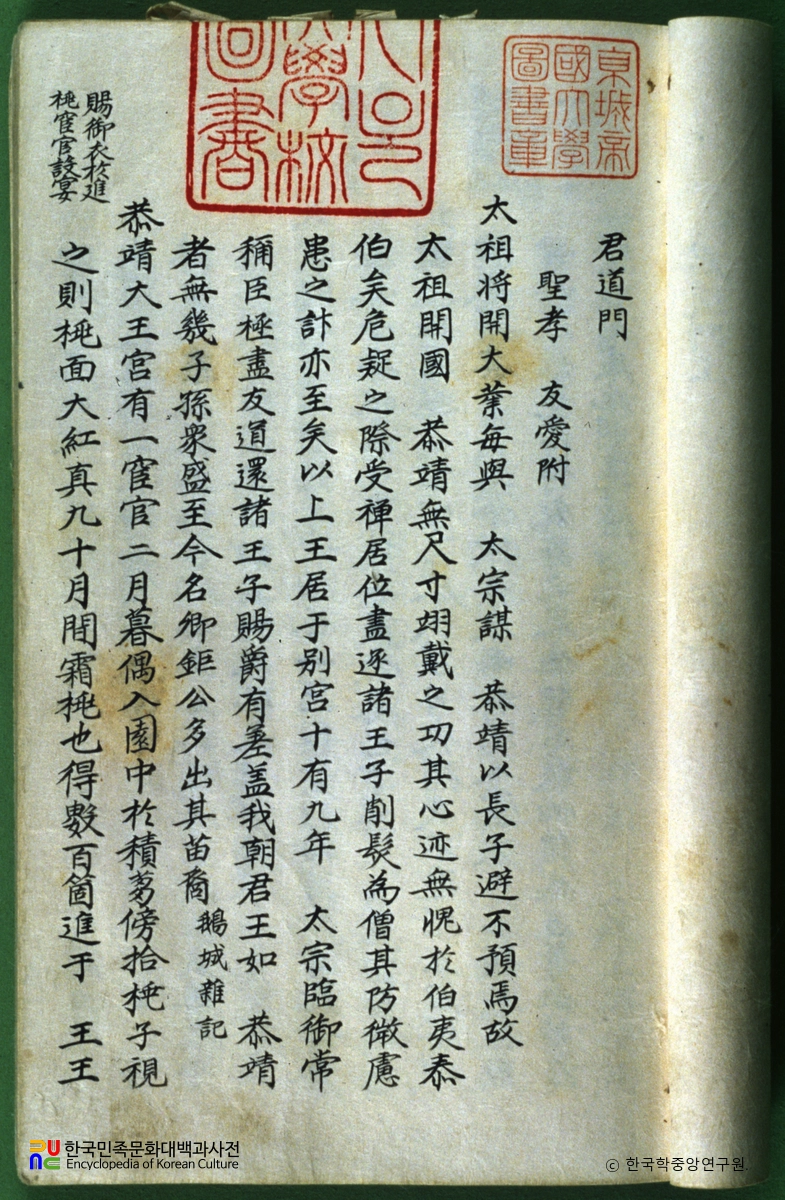 君道門
聖孝 友愛附
太祖将開大業每與 太宗謀 恭靖以長子避不預焉故
太祖開國 恭靖無尺寸翊戴之功其心迹無愧於伯夷泰
伯矣危疑之際受禅居位盡逐諸王子削髮為僧其防微慮
患之計亦至矣以上王居于别宮十有九年 太宗臨御常
稱臣極盡友道還諸王子賜爵有差盖我朝君王如 恭靖
者無幾子孫衆盛至今名卿鉅公多出其苗裔 鵝城雜記
恭靖大王宮有一宦官二月暮偶入園中於積蒭傍拾桃子視
之則桃面大紅真九十月間霜桃也得數百箇進于 王王
賜御衣於進
桃宦官設宴
京城帝
國大學
圖書章
大學校
圖書
한국민족문화대백과사전
Encyclopedia of Korean Culture
© 한국학중앙연구원.